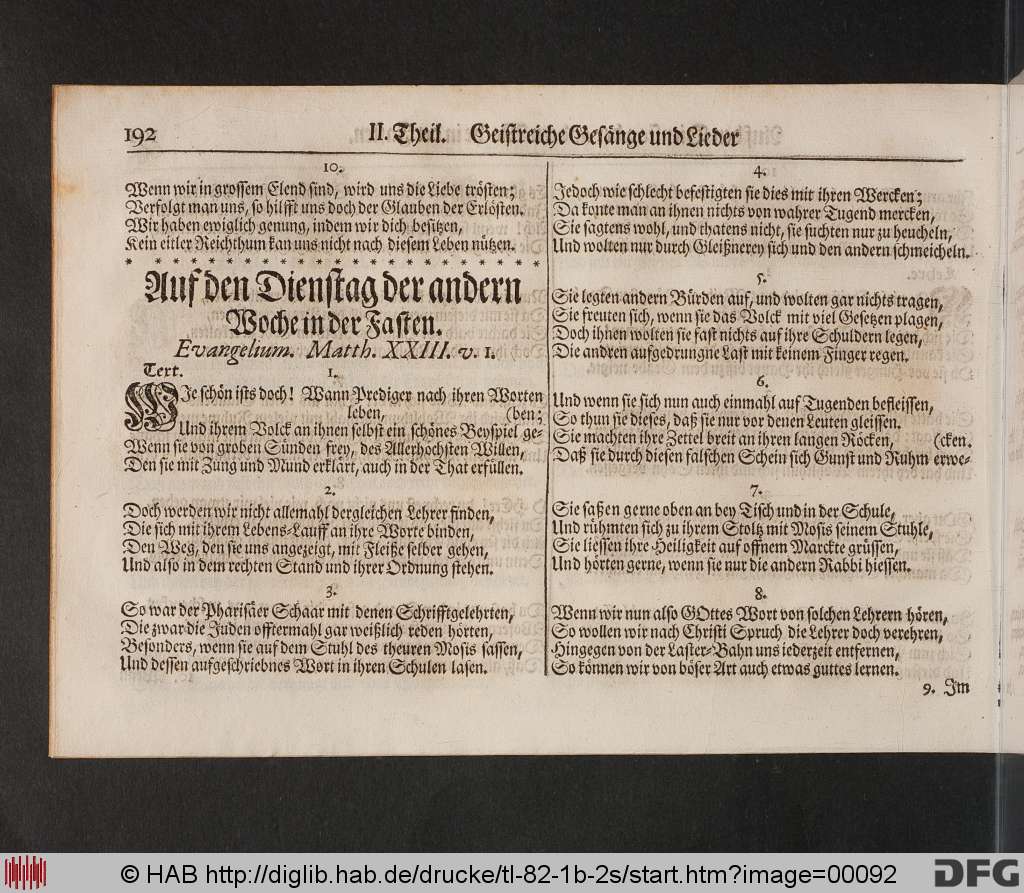 192
II. Theil. Geistreiche Gesänge und Lieder
10.
Wenn wir in grossem Elend sind, wird uns die Liebe trösten;
Verfolgt man uns, so hilfft uns doch der Glauben der Erlösten.
Wir haben ewiglich genung, indem wir dich besitzen,
Kein eitler Reichthum kan uns nicht nach diesem Leben nützen.
* * * * * * * * * * * * * * * * * * * * * * * * * *
Auf den Dienstag der andern
Woche in der Fasten.
Evangelium. Matth. XXIII. v. 1.
Text.
1.
WIe schön ists doch! Wann Prediger nach ihren Worten
leben, (ben;
Und ihrem Volck an ihnen selbst ein schönes Beyspiel ge-
Wenn sie von groben Sünden frey, des Allerhöchsten Willen,
Den sie mit Zung und Mund erklärt, auch in der That erfüllen.
2.
Doch werden wir nicht allemahl dergleichen Lehrer finden,
Die sich mit ihrem Lebens-Lauff an ihre Worte binden,
Den Weg, den sie uns angezeigt, mit Fleiße selber gehen,
Und also in dem rechten Stand und ihrer Ordnung stehen.
3.
So war der Pharisäer Schaar mit denen Schrifftgelehrten,
Die zwar die Juden offtermahl gar weißlich reden hörten,
Besonders, wenn sie auf dem Stuhl des theuren Mosis sassen,
Und dessen aufgeschriebnes Wort in ihren Schulen lasen.
4.
Jedoch wie schlecht befestigten sie dies mit ihren Wercken;
Da konte man an ihnen nichts von wahrer Tugend mercken,
Sie sagtens wohl, und thatens nicht, sie suchten nur zu heucheln,
Und wolten nur durch Gleißnerey sich und den andern schmeicheln.
5.
Sie legten andern Bürden auf, und wolten gar nichts tragen,
Sie freuten sich, wenn sie das Volck mit viel Gesetzen plagen,
Doch ihnen wolten sie fast nichts auf ihre Schuldern legen,
Die andren aufgedrungne Last mit keinem Finger regen.
6.
Und wenn sie sich nun auch einmahl auf Tugenden befleissen,
So thun sie dieses, daß sie nur vor denen Leuten gleissen.
Sie machten ihre Zettel breit an ihren langen Röcken, (cken.
Daß sie durch diesen falschen Schein sich Gunst und Ruhm erwe-
7.
Sie saßen gerne oben an bey Tisch und in der Schule,
Und rühmten sich zu ihrem Stoltz mit Mosis seinem Stuhle,
Sie liessen ihre Heiligkeit auf offnem Marckte grüssen,
Und hörten gerne, wenn sie nur die andern Rabbi hiessen.
8.
Wenn wir nun also GOttes Wort von solchen Lehrern hören,
So wollen wir nach Christi Spruch die Lehrer doch verehren,
Hingegen von der Laster-Bahn uns iederzeit entfernen,
So können wir von böser Art auch etwas guttes lernen.
9. Im
© HAB http://diglib.hab.de/drucke/tl-82-1b-2s/start.htm?image=00092
DFG